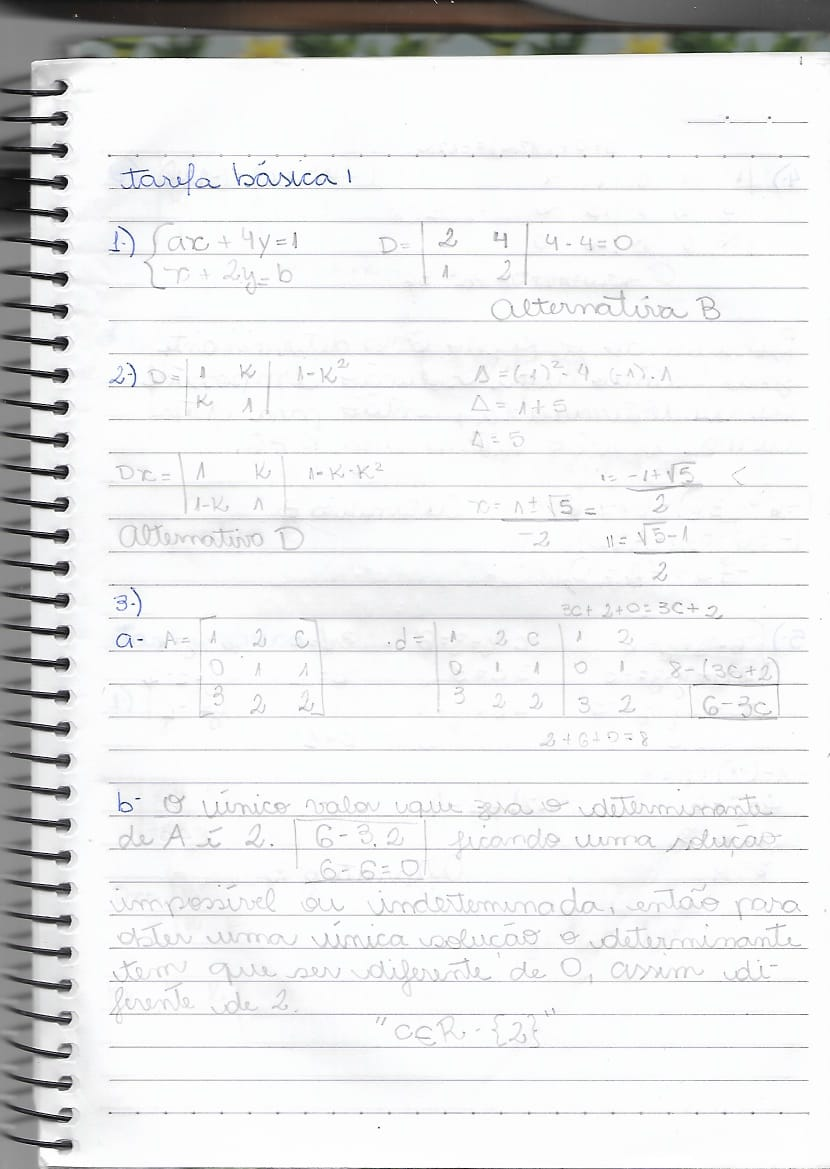 tarefa básica 1
1-) { ax + 4y = 1 D = | 2 4 | 4 - 4 = 0
{ x + 2y = b | 1 2 |
Alternativa B
2-) D = | 1 K | 1-K² Δ = (-1)² - 4 . (-1) . 1
| K 1 | Δ = 1 + 5
Δ = 5
Dx = | 1 K | 1 - K - K² I = -1 + √5 <
| 1-K 1 | x = 1 ± √5 = 2
Alternativo D -2 II = √5 - 1
2
3-) 3C + 2 + 0 = 3C + 2
a- A = [ 1 2 C ] .d = | 1 2 C | 1 2
[ 0 1 1 ] | 0 1 1 | 0 1 8 - (3C + 2)
[ 3 2 2 ] | 3 2 2 | 3 2 6 - 3C
2 + 6 + 0 = 8
b- O único valor que zera o determinante
de A é 2. | 6 - 3.2 | ficando uma solução
6 - 6 = 0
impossível ou indeteminada, então para
obter uma única solução o determinante
tem que ser diferente de 0, assim di-
ferente de 2.
"C∈R - {2}"